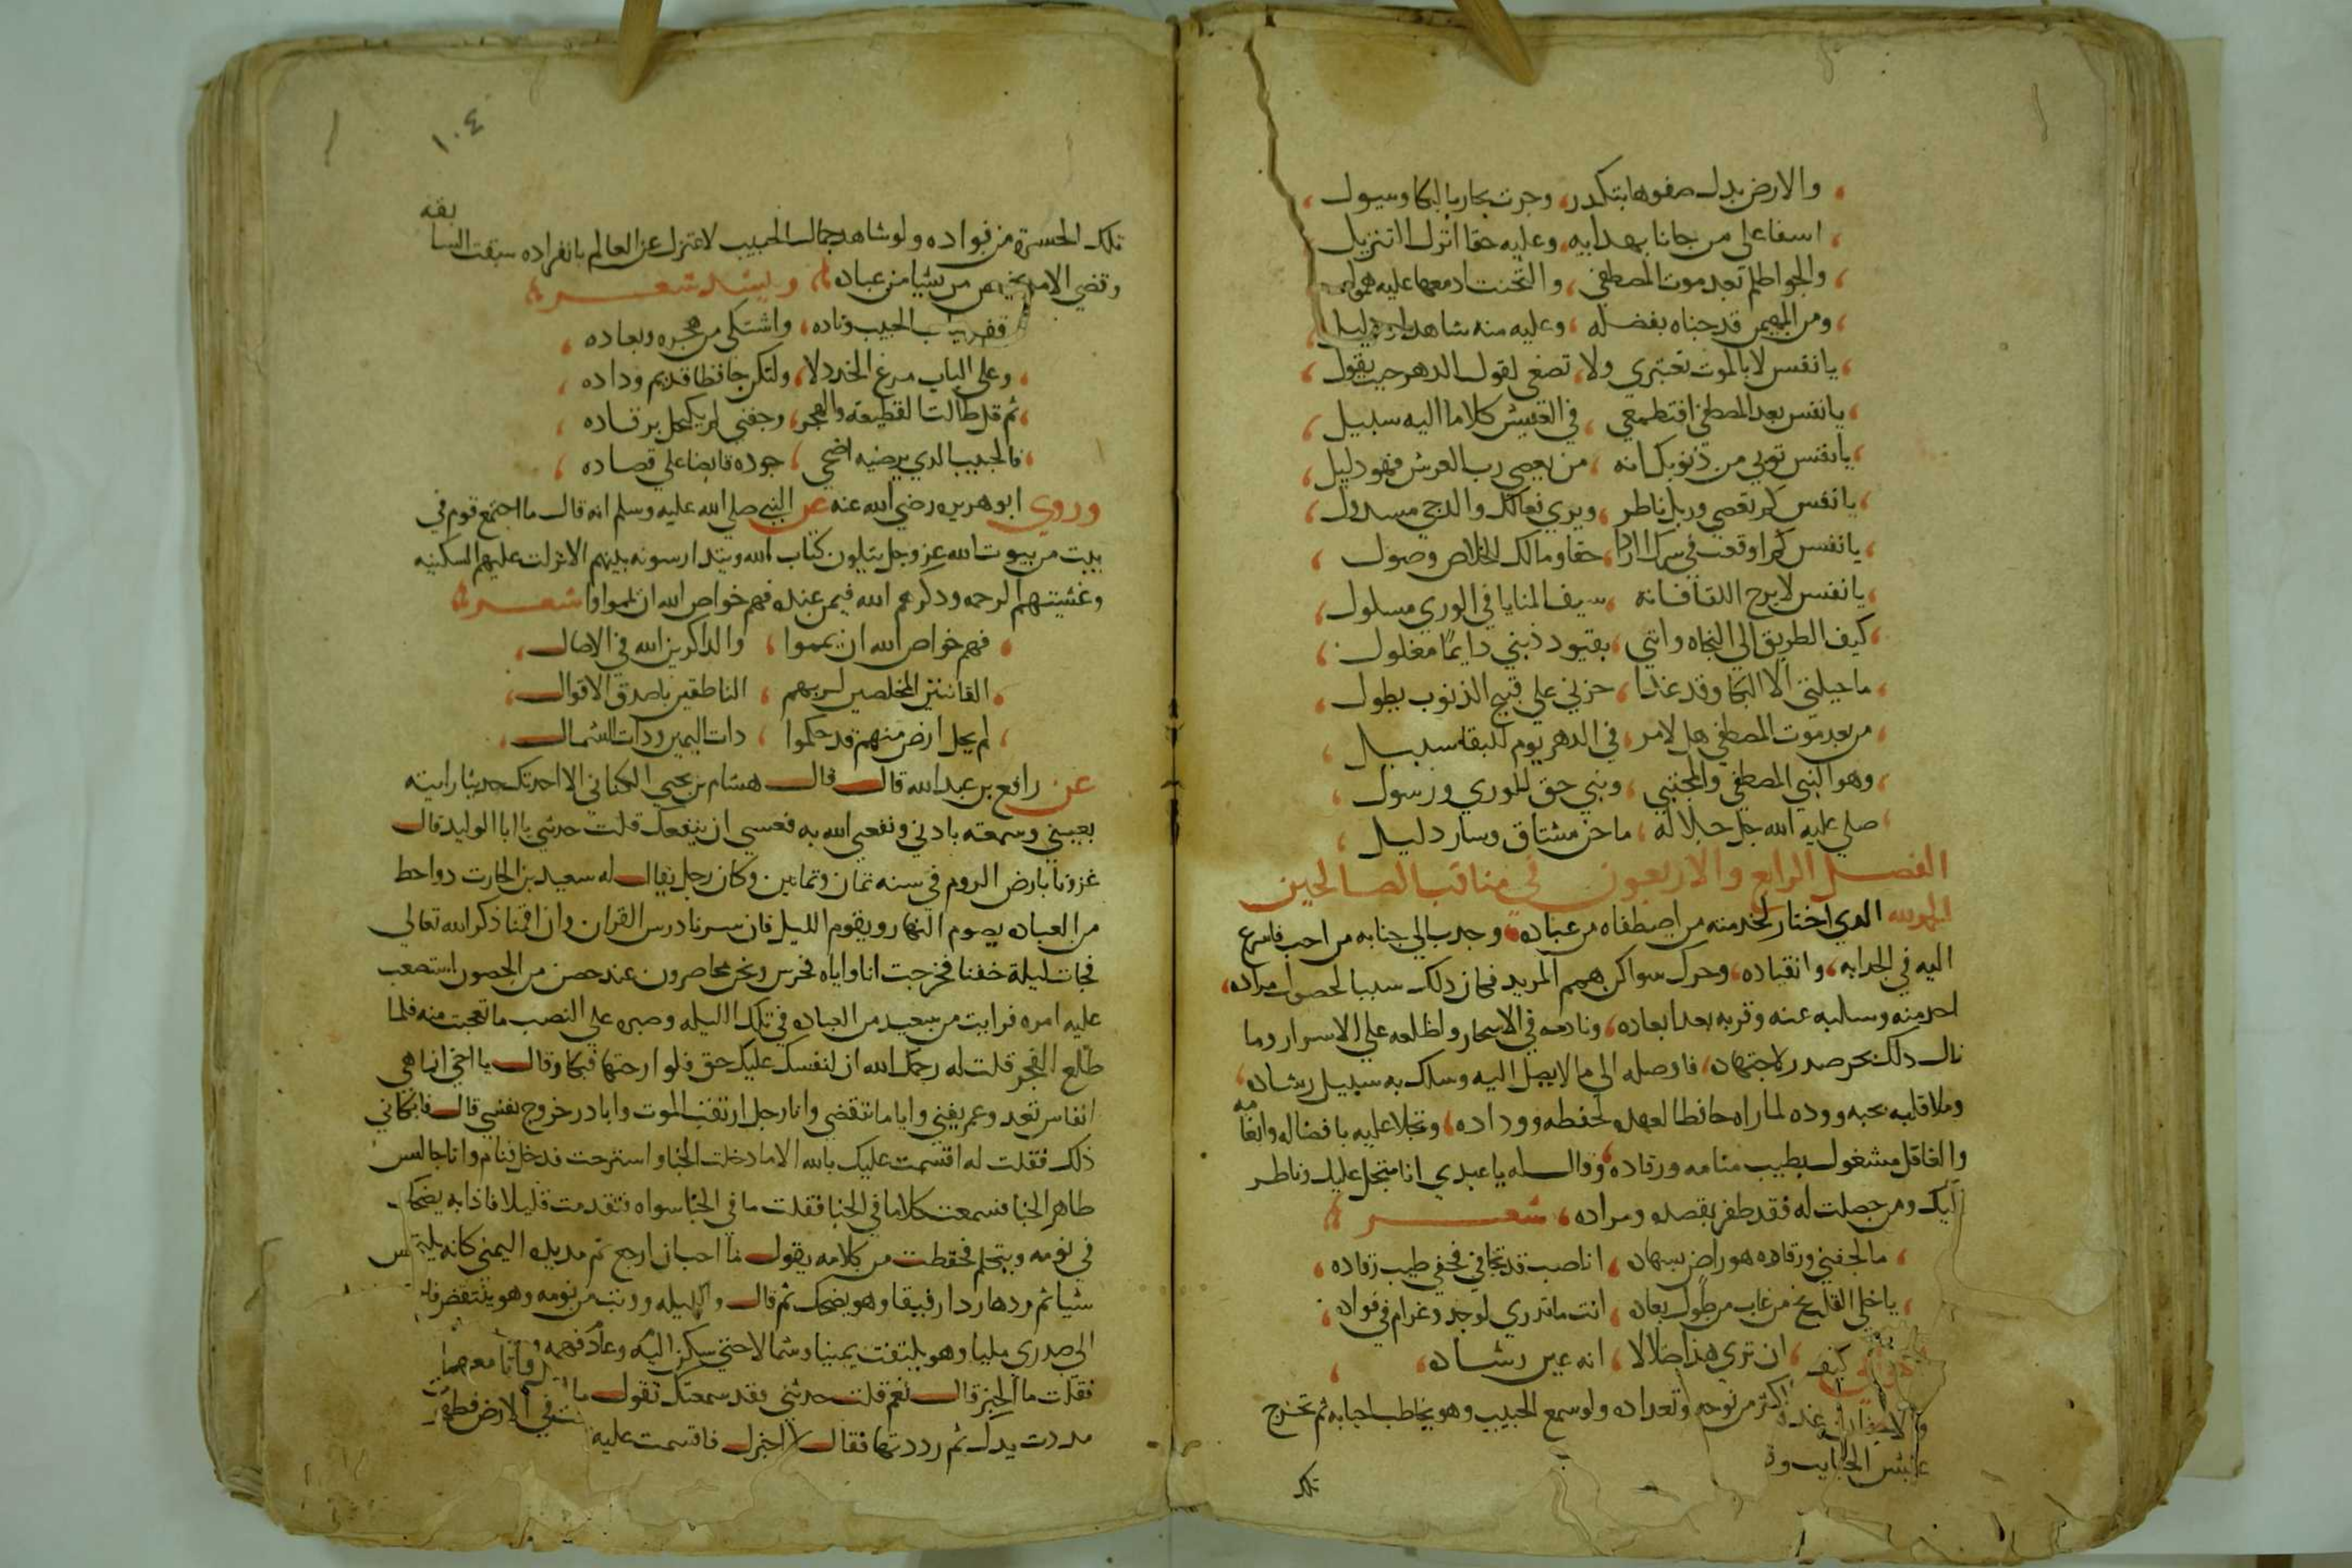 والارض بدل صفوها بتكدر، وجرت بحار بالبكا وسيول
اسفا على من جانا بهدايه، وعليه حقا انزل التنزيل
والجو اظلم بعد موت المصطفي، والتحنت ادمعها عليه همول
ومن المهيمن قد حباه بفضله، وعليه منه شاهد ودليل
يا نفس لا بالموت تعتبري ولا، تصغي لقول الدهر حيث يقول
يا نفس بعد المصطفي افتطمعي، في العيش كلا ما اليه سبيل
يا نفس توبي من ذنوبك انه، من يعصي رب العرش فهو دليل
يا نفس كم تعصي وربك ناظر، ويري فعالك والدجي مسدول
يا نفس كم اوقعت في شرك الردا، حقا ومالك للخلاص وصول
يا نفس لا برح اللقا فانه، سيف المنايا في الوري مسلول
كيف الطريق الي النجاه وانني، بقيود ذنبي دايمًا مغلول
ما حيلتي الا البكا وقد غدا، حزني علي قبيح الذنوب يطول
من بعد موت المصطفي هل لامر، في الدهر يوم للبقا سبيل
وهو النبي المصطفي والمجتبي، ونبي حق للوري ورسول
صلي عليه الله جل جلاله، ما حن مشتاق وسار دليل
الفصل الرابع والاربعون في مناقب الصالحين
الحمد لله الدي اختار لخدمته من اصطفاه من عباده، وجدب الي جنابه من احب فاسرع
اليه في انجدابه، وانقياده، وحرك سواكن همم المريد فكان دلك سببا لحصول مراده،
اخد منه وسلبه عنه وقربه بعد ابعاده، ونادمه في الاسحار واطلعه علي الاسرار وما
نال دلك بحرصه ولا اجتهاده، فاوصله الي ما لا يصل اليه وسلك به سبيل رشاده،
وملا قلبه بحبه ووده لما راه حافظا لعهده لحفظه ووداده، وتجلا عليه بافضاله وانعامه
والغافل مشغول بطيب منامه ورقاده، وقال له يا عبدي انا متجل عليك وناظر
اليك ومن حصلت له فقد ظفر بقصده ومراده، شعر
ما لجفني ورقاده هو راض بسهاده، انا صب قد تجافي جفني طيب رقاده،
يا خلي القلب نح من غاب من طول بعاده، انت ما تدري لوجد وغرام في فواده،
كيف ان تري هذا ضلالا، انه عين رشاده،
اكثر من نوحه وتعداده ولو سمع الحبيب وهو يخاطب احبابه ثم تخرج
تلك
١٠٤
تلك الحسرة من فواده ولو شاهد جمال الحبيب لاعتزل عن العالم بانفراده سبقت السابقه
وقضي الامر يختص من يشا من عباده، وينشد شعر
قف بباب الحبيب وناده، واشتكي من هجره وبعاده،
وعلي الباب مرغ الخد دلا، ولتكن حافظا قديم وداده،
ثم قل طالت القطيعه والهجر، وجفني لم يكتحل برقاده،
فالحبيب الدي يرضيه اضحي، جوده فايضا علي قصاده،
وروي ابو هريره رضي الله عنه عن النبي صلي الله عليه وسلم انه قال ما اجتمع قوم في
بيت من بيوت الله عز وجل يتلون كتاب الله ويتدارسونه بينهم الا نزلت عليهم السكينه
وغشيتهم الرحمه ودكرهم الله فيمن عنده فهم خواص الله ان يمموا وا شعر
فهم خواص الله ان يمموا، والداكرين الله في الاصال،
القانتين المخلصين لربهم، الناطقين باصدق الاقوال،
لم يخل ارض منهم قد حكموا، دات اليمين ودات الشمال،
عن رافع بن عبد الله قال قال هشام بن يحيي الكناني الا احدتك حديثا رايته
بعيني وسمعته بادني ونفعني الله به فعسي ان ينفعك قلت حدثني يا ابا الوليد قال
غزونا بارض الروم في سنه ثمان وثمانين وكان رجل يقال له سعيد بن الحارث دو احظ
من العباده يصوم النهار ويقوم الليل فان سرنا درس القران وان اقمنا ذكر الله تعالي
فجات ليلة خفنا فخرجت انا واياه نحرس ونحن محاصرون عند حصن من الحصون استصعب
عليه امره فرايت من سعيد من العباده في تلك الليله وصبره علي النصب ما تعجبت منه فلما
طلع الفجر قلت له رحمك الله ان لنفسك عليك حق فلو ارحتها فبكا وقال يا اخي انما هي
انفاس تعد وعمر يفني وايام تنقضي وانا رجل ارتقب الموت وابادر خروج نفسي قال فابكاني
ذلك فقلت له اقسمت عليك بالله الا ما دخلت الخبا واسترحت فدخل فنام وانا جالس
ظاهر الخبا فسمعت كلاما في الخبا فقلت ما في الخبا سواه فتقدمت قليلا فاذا به يضحك
في نومه ويتكلم فحفظت من كلامه يقول ما احب ان ارجع ثم مد يده اليمني كانه يلتمس
شيا ثم ردها ردا رفيقا وهو يضحك ثم قال والليله ووثب من نومه وهو ينتفض
الي صدري مليا وهو يلتفت يمينا وشمالا حتي سكن اليه وعاد فهمه
فقلت ما الخبر قال نعم قلت حدثني فقد سمعتك تقول ما
مددت يدك ثم رددتها فقال لا اخبرك فاقسمت عليه